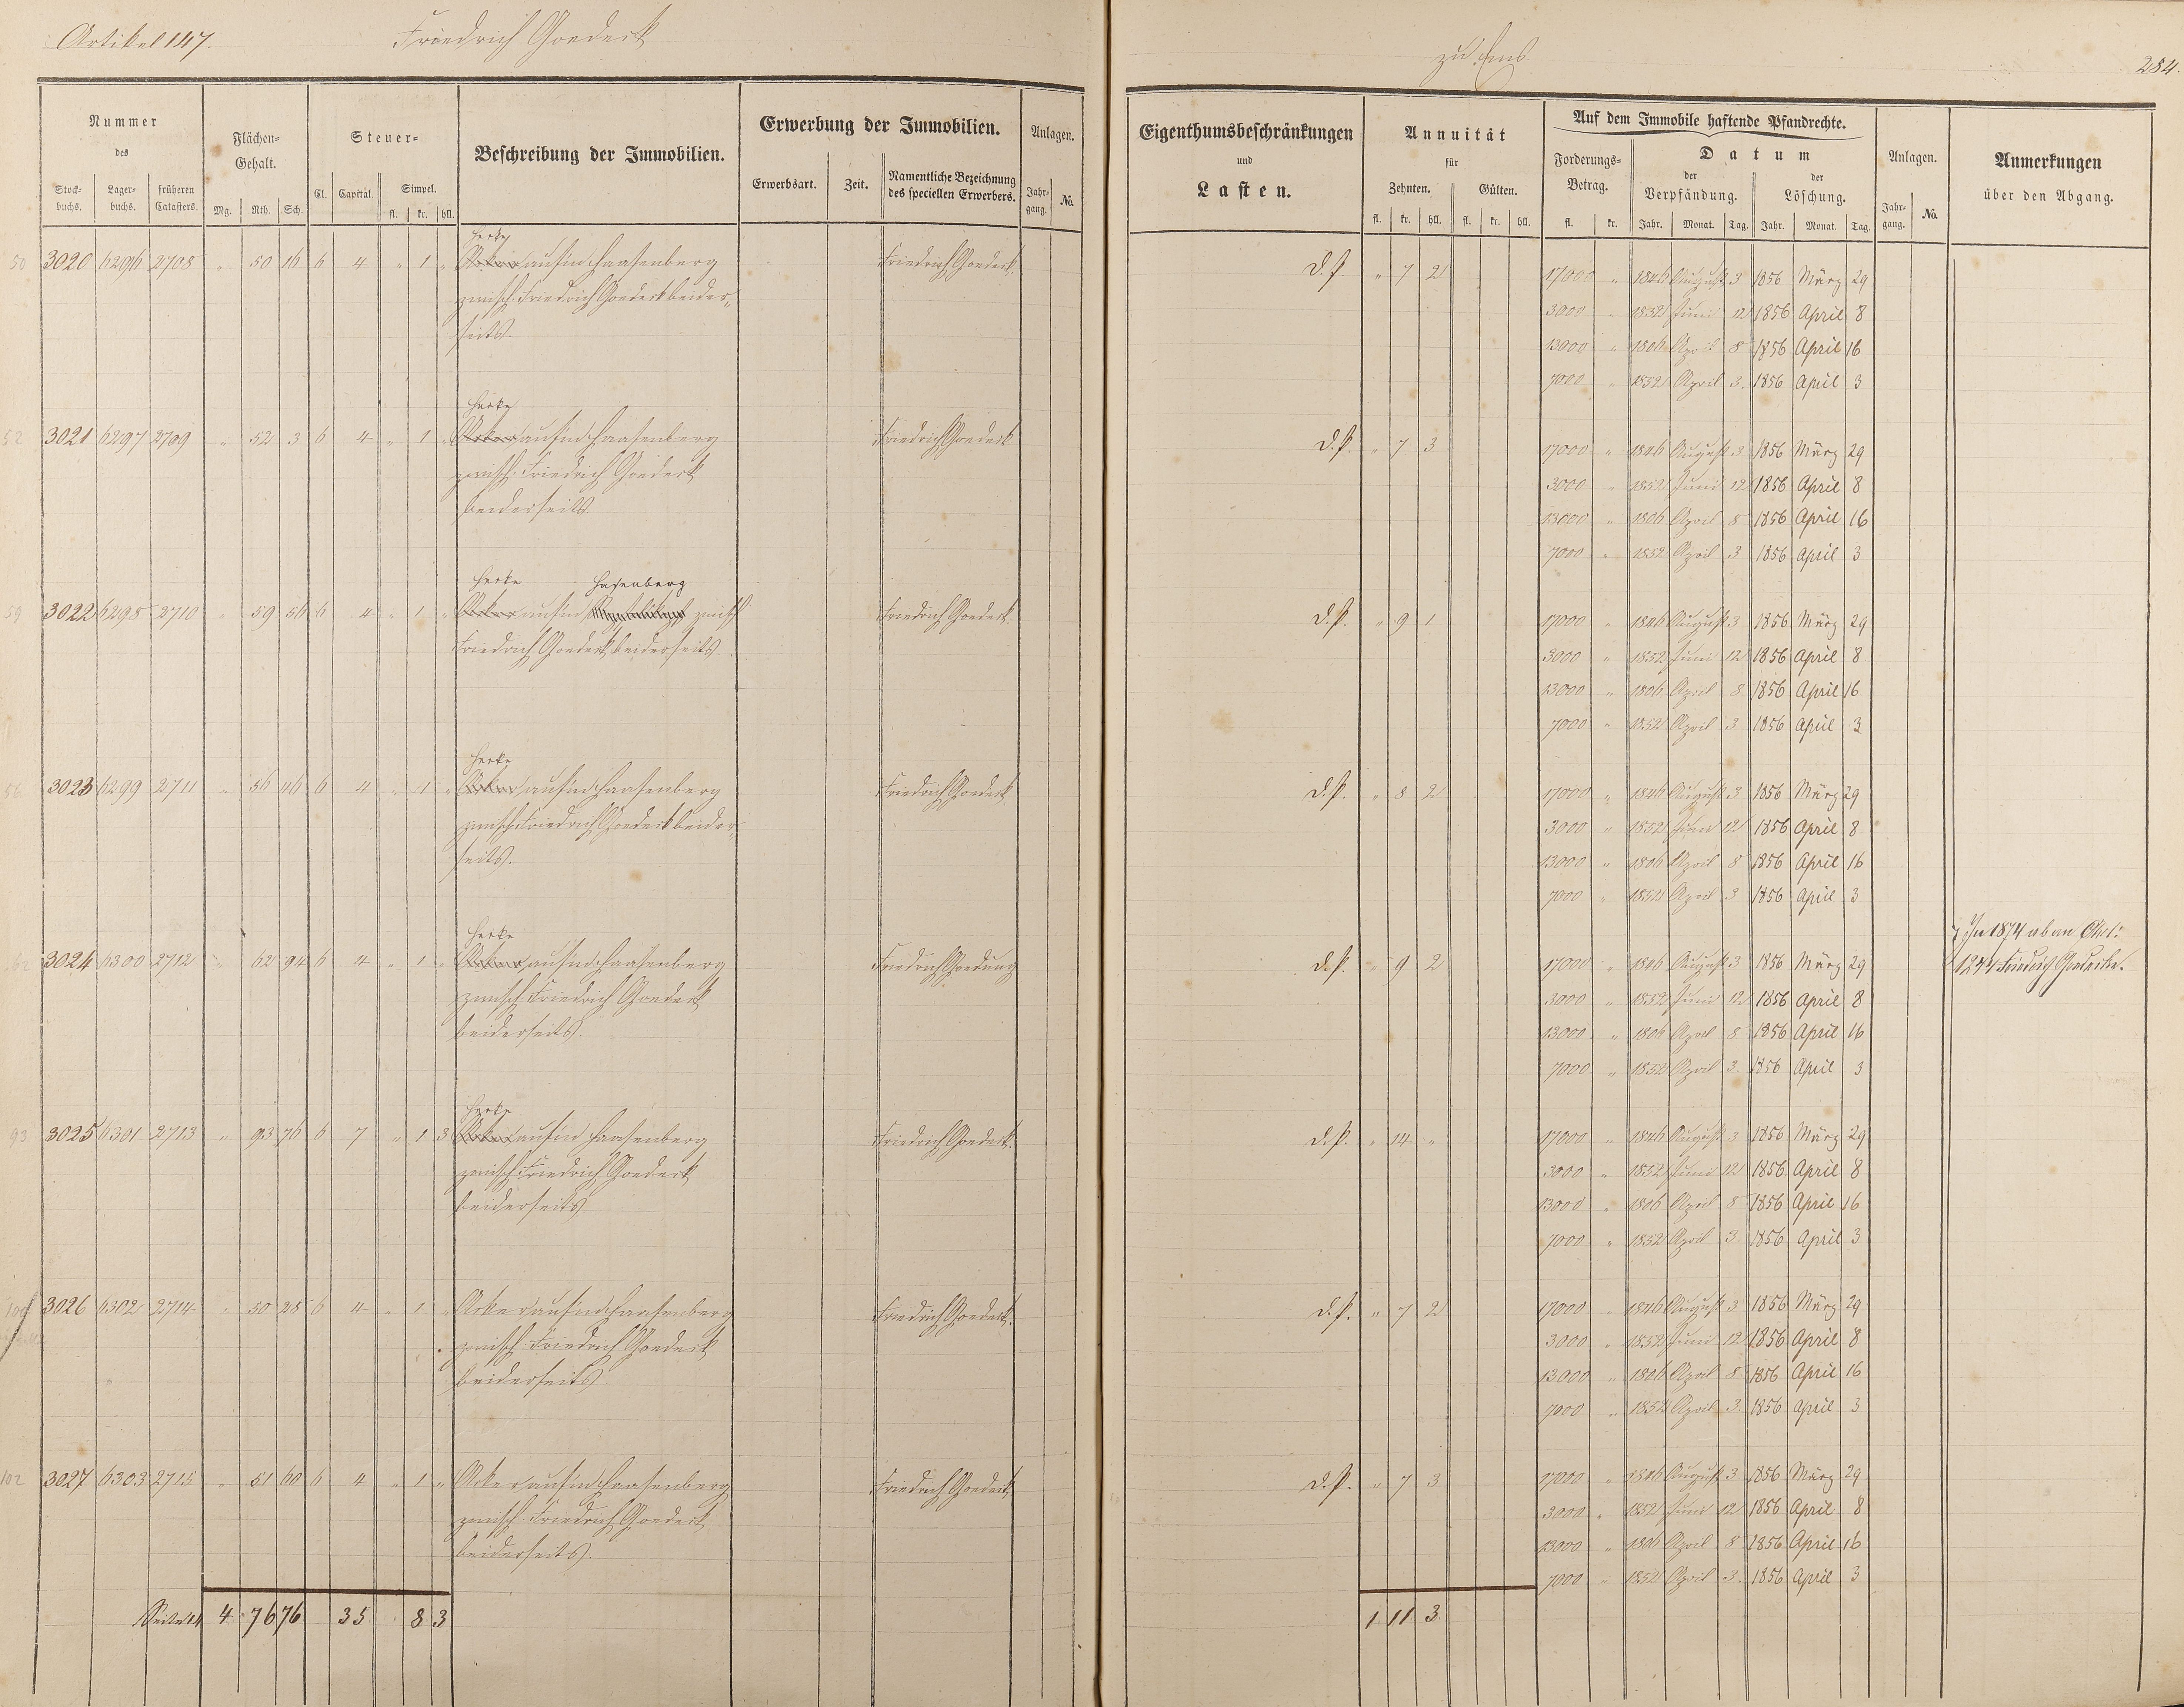 Artikel 147. Friedrich Goedeck
zu Ems 284.
Nummer des
Stockbuchs. Lagerbuchs. früheren Catasters.
Flächen-Gehalt.
Mg. Rth. Sch.
Steuer-
Cl. Capital. Simpel.
fl. kr. hll.
Beschreibung der Immobilien.
Erwerbung der Immobilien.
Erwerbsart. Zeit. Namentliche Bezeichnung des speciellen Erwerbers.
Anlagen.
Jahrgang. No.
Eigenthumsbeschränkungen
und
Lasten.
Annuität
für
Zehnten. Gülten.
fl. kr. hll. fl. kr. hll.
Auf dem Immobile haftende Pfandrechte.
Forderungs-Betrag.
fl. kr.
Datum
der Verpfändung. der Löschung.
Jahr. Monat. Tag. Jahr. Monat. Tag.
Anlagen.
Jahrgang. No.
Anmerkungen
über den Abgang.
Hecke
50 3020 6296 2708 " 50 16 6 4 " 1 " Acker auf'm Haasenberg Friedrich Goedeck d.f. " 7 2 17000 " 1846 August 3 1856 März 29
zwisch. Friedrich Goedeck beider- 3000 " 1852 Juni 12 1856 April 8
seits. 13000 " 1806 April 8 1856 April 16
7000 " 1852 April 3. 1856 April 3
Hecke
52 3021 6297 2709 " 52 3 6 4 " 1 " Acker auf'm Haasenberg Friedrich Goedeck d.f. " 7 3 17000 " 1846 August 3 1856 März 29
zwisch. Friedrich Goedeck 3000 " 1852 Juni 12 1856 April 8
beiderseits 13000 " 1806 April 8 1856 April 16
7000 " 1852 April 3 1856 April 3
Hecke Hasenberg
59 3022 6298 2710 " 59 56 6 4 " 1 " Acker auf'm zwisch Friedrich Goedeck. d.f. " 9 1 17000 " 1846 August 3 1856 März 29
Friedrich Goedeck beiderseits 3000 " 1852 Juni 12 1856 April 8
13000 " 1806 April 8 1856 April 16
7000 " 1852 April 3 1856 April 3
Hecke
56 3023 6299 2711 " 56 46 6 4 " 1 " Acker auf'm Haasenberg Friedrich Goedeck d.f. " 8 2 17000 " 1846 August 3 1856 März 29
zwisch. Friedrich Goedeck beider- 3000 " 1852 Juni 12 1856 April 8
seits. 13000 " 1806 April 8 1856 April 16
7000 " 1852 April 3 1856 April 3
Hecke
In 1874 ab an Art:
62 3024 6300 2712 " 62 94 6 4 " 1 " Acker auf'm Haasenberg Friedrich d.f. " 9 2 17000 " 1846 August 3 1856 März 29 1244 Friedrich Goedecke.
zwisch. Friedrich Goedeck 3000 " 1852 Juni 12 1856 April 8
beiderseits. 13000 " 1806 April 8 1856 April 16
7000 " 1852 April 3. 1856 April 3
Hecke
93 3025 6301 2713 " 93 76 6 7 " 1 3 Acker auf'm Haasenberg Friedrich Goedeck. d.f. " 14 " 17000 " 1846 August 3 1856 März 29
zwisch. Friedrich Goedeck 3000 " 1852 Juni 12 1856 April 8
beiderseits. 13000 " 1806 April 8 1856 April 16
7000 " 1852 April 3 1856 April 3
3026 6302 2714 " 50 25 6 4 " 1 " Acker auf'm Haasenberg Friedrich Goedeck. d.f. " 7 2 17000 " 1846 August 3 1856 März 29
zwisch. Friedrich Goedeck 3000 " 1852 Juni 12 1856 April 8
beiderseits 13000 " 1806 April 8 1856 April 16
7000 " 1852 April 3. 1856 April 3
102 3027 6303 2715 " 51 60 6 4 " 1 " Acker auf'm Haasenberg Friedrich Goedeck d.f. " 7 3 17000 " 1846 August 3 1856 März 29
zwisch. Friedrich Goedeck 3000 " 1852 Juni 12 1856 April 8
beiderseits. 13000 " 1806 April 8 1856 April 16
7000 " 1852 April 3. 1856 April 3
Seite 14 4 76 76 35 8 3 1 11 3